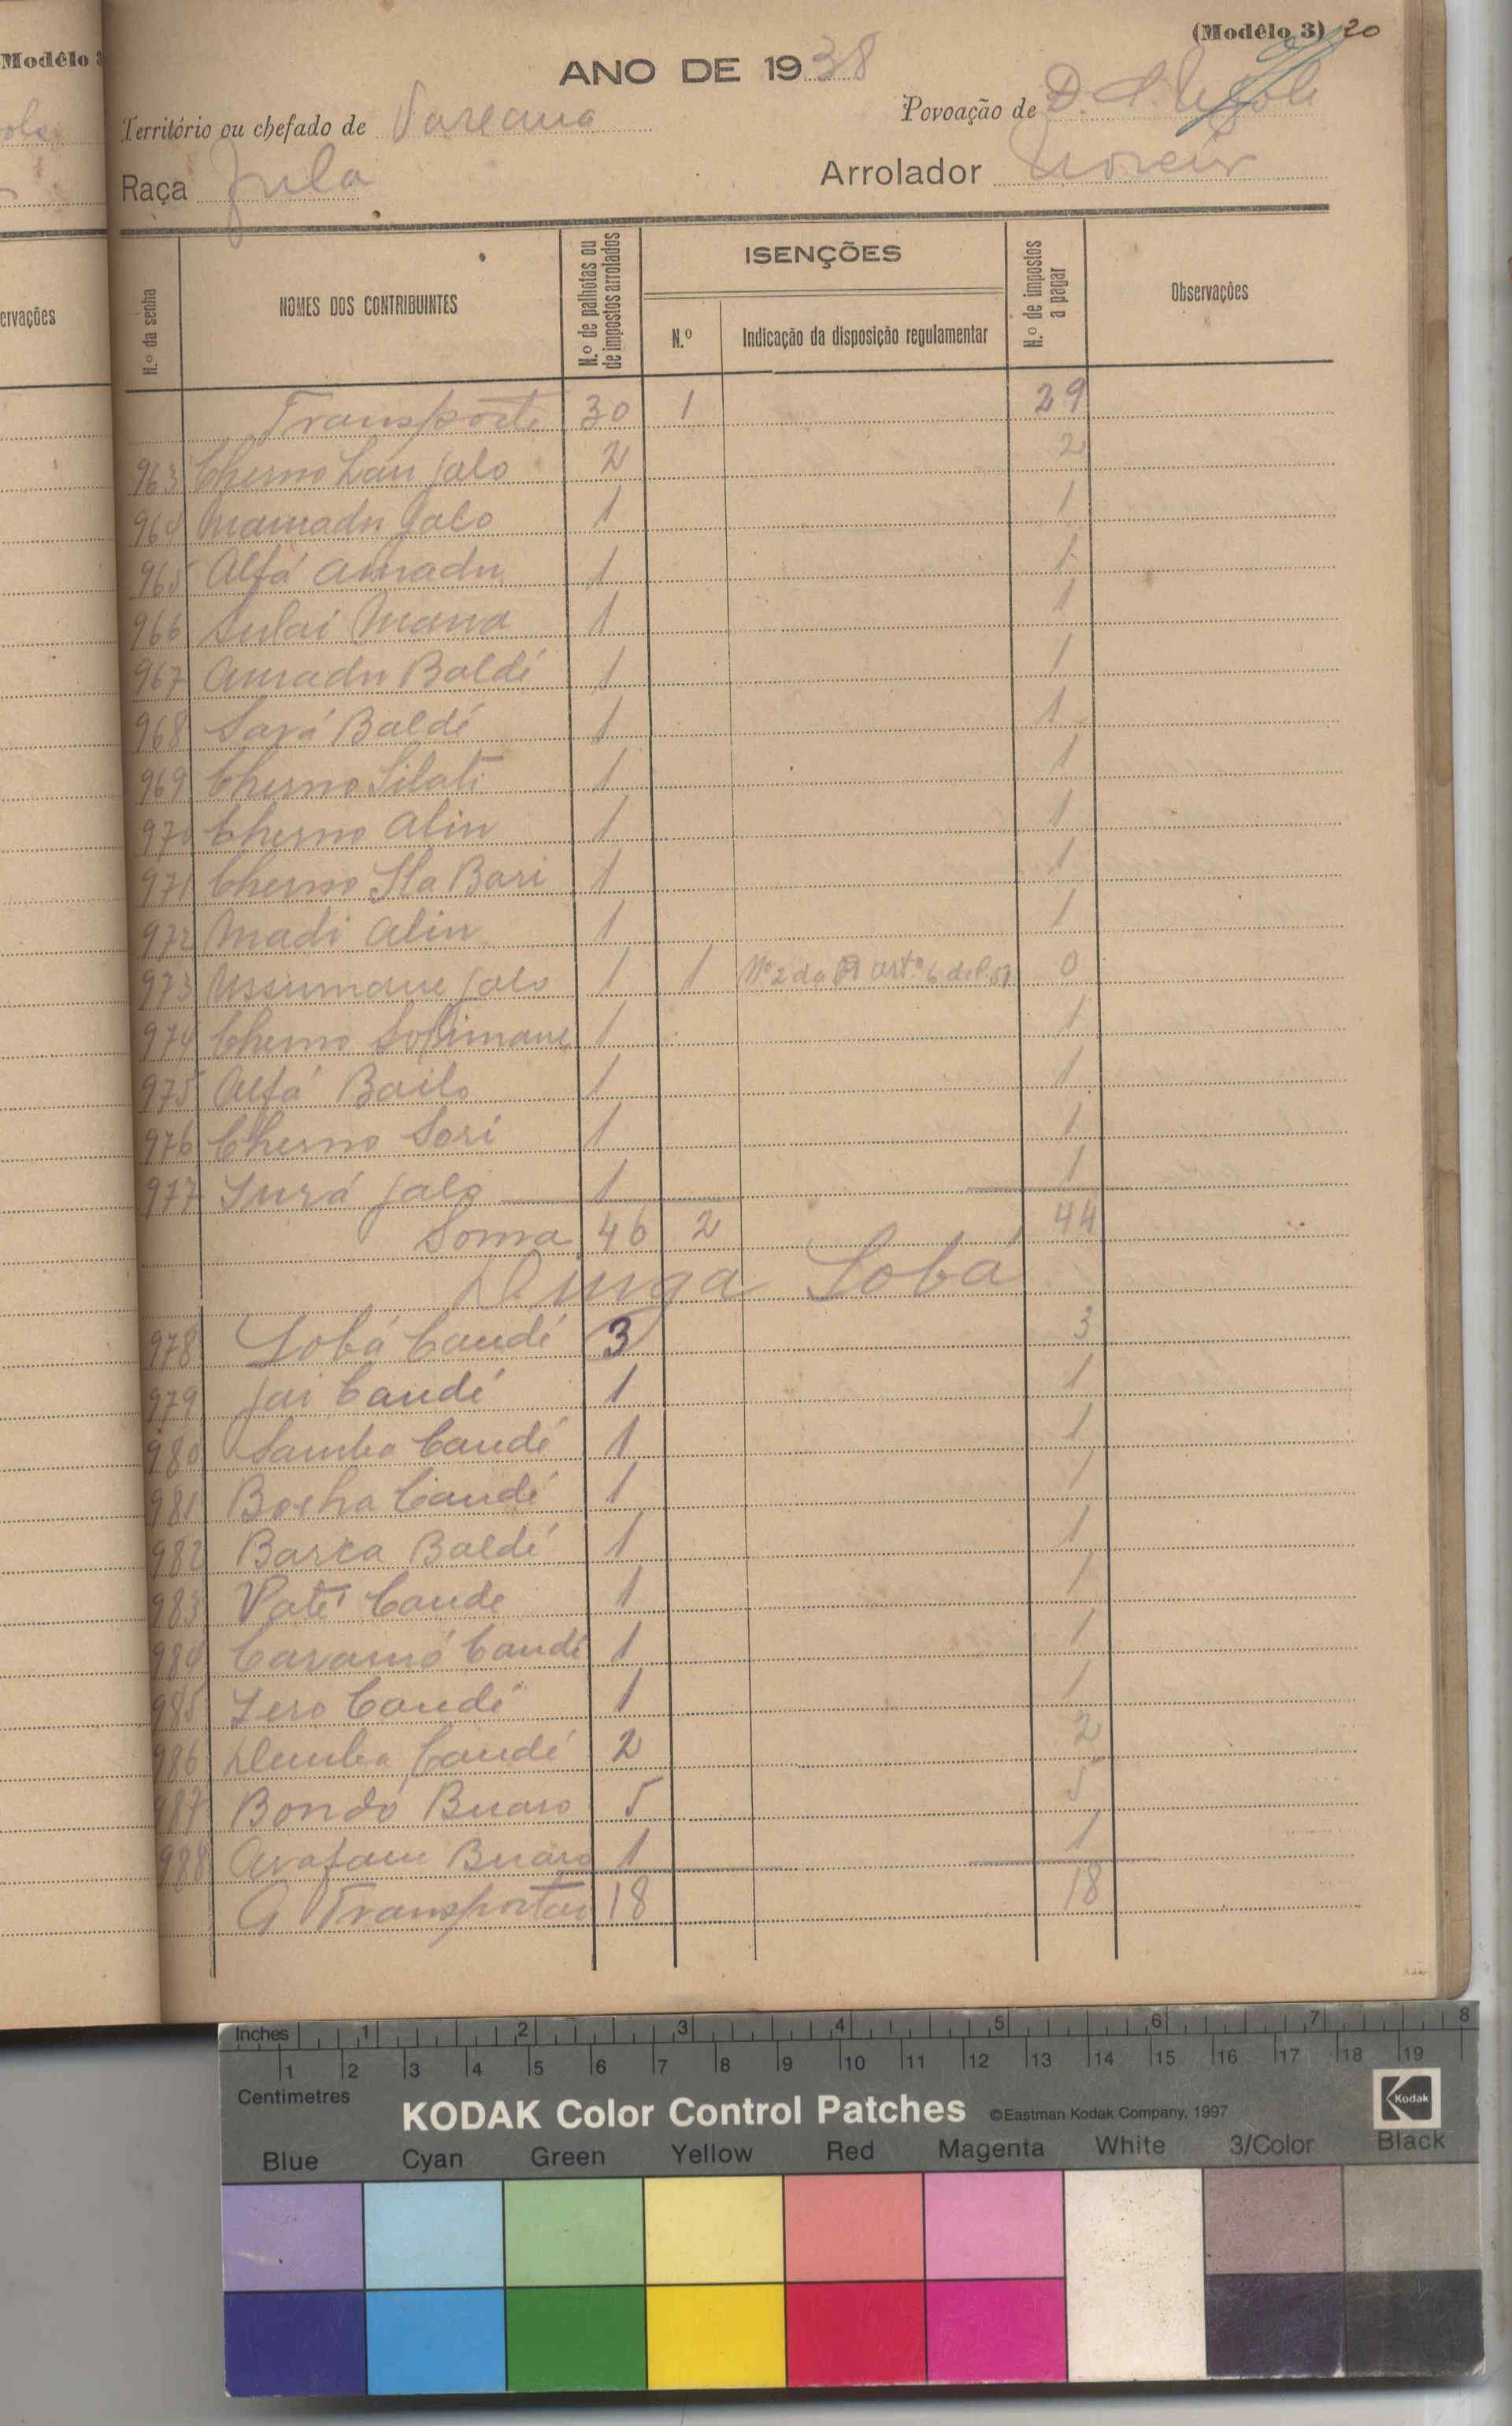 Modêlo 3
(Modêlo 3) 20
ANO DE 1938
Território ou chefado de
Povoação de D.
Raça Fula
Arrolador Moreir
ervações
N.º da senha
NOMES DOS CONTRIBUINTES
N.º de palhotas ou de impostos arrolados
ISENÇÕES
N.º
Indicação da disposição regulamentar
N.º de impostos a pagar
Observações
Transporte 30 1 29
963 Cherno Lau Jalo 2 2
964 Mamadu Jalo 1 1
965 Alfá Amadu 1 1
966 Sulai Mana 1 1
967 Amadu Baldé 1 1
968 Sará Baldé 1 1
969 Cherno Silati 1 1
970 Cherno Alin 1 1
971 Cherno Sla Bari 1 1
972 Madi Alin 1 1
973 Ussumane Jalo 1 1 Nº 2 do art.º 6 0
974 Cherno Solimane 1 1
975 Alfá Bailo 1 1
976 Cherno Sori 1 1
977 Jurá Jalo 1 1
Soma 46 2 44
Lobá
978 Lobá Candé 3 3
979 Jai Candé 1 1
980 Samba Candé 1 1
981 Bocha Candé 1 1
982 Barca Baldé 1 1
983 Paté Cande 1 1
984 Caramó Candé 1 1
985 Iero Candé 1 1
986 Demba Candé 2 2
987 Bondó Buaro 5 5
988 Arafam Buaro 1 1
A Transportar 18 18
Inches 1 2 3 4 5 6 7 8
1 2 3 4 5 6 7 8 9 10 11 12 13 14 15 16 17 18 19
Centimetres
KODAK Color Control Patches ©Eastman Kodak Company, 1997 Kodak
Blue Cyan Green Yellow Red Magenta White 3/Color Black